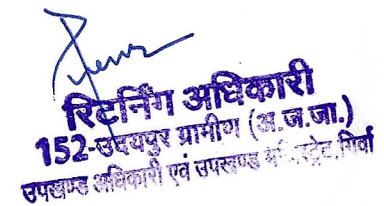 रिटर्निंग अधिकारी
152-उदयपुर ग्रामीण (अ.ज.जा.)
उपखण्ड अधिकारी एवं उपखण्ड गिर्वा